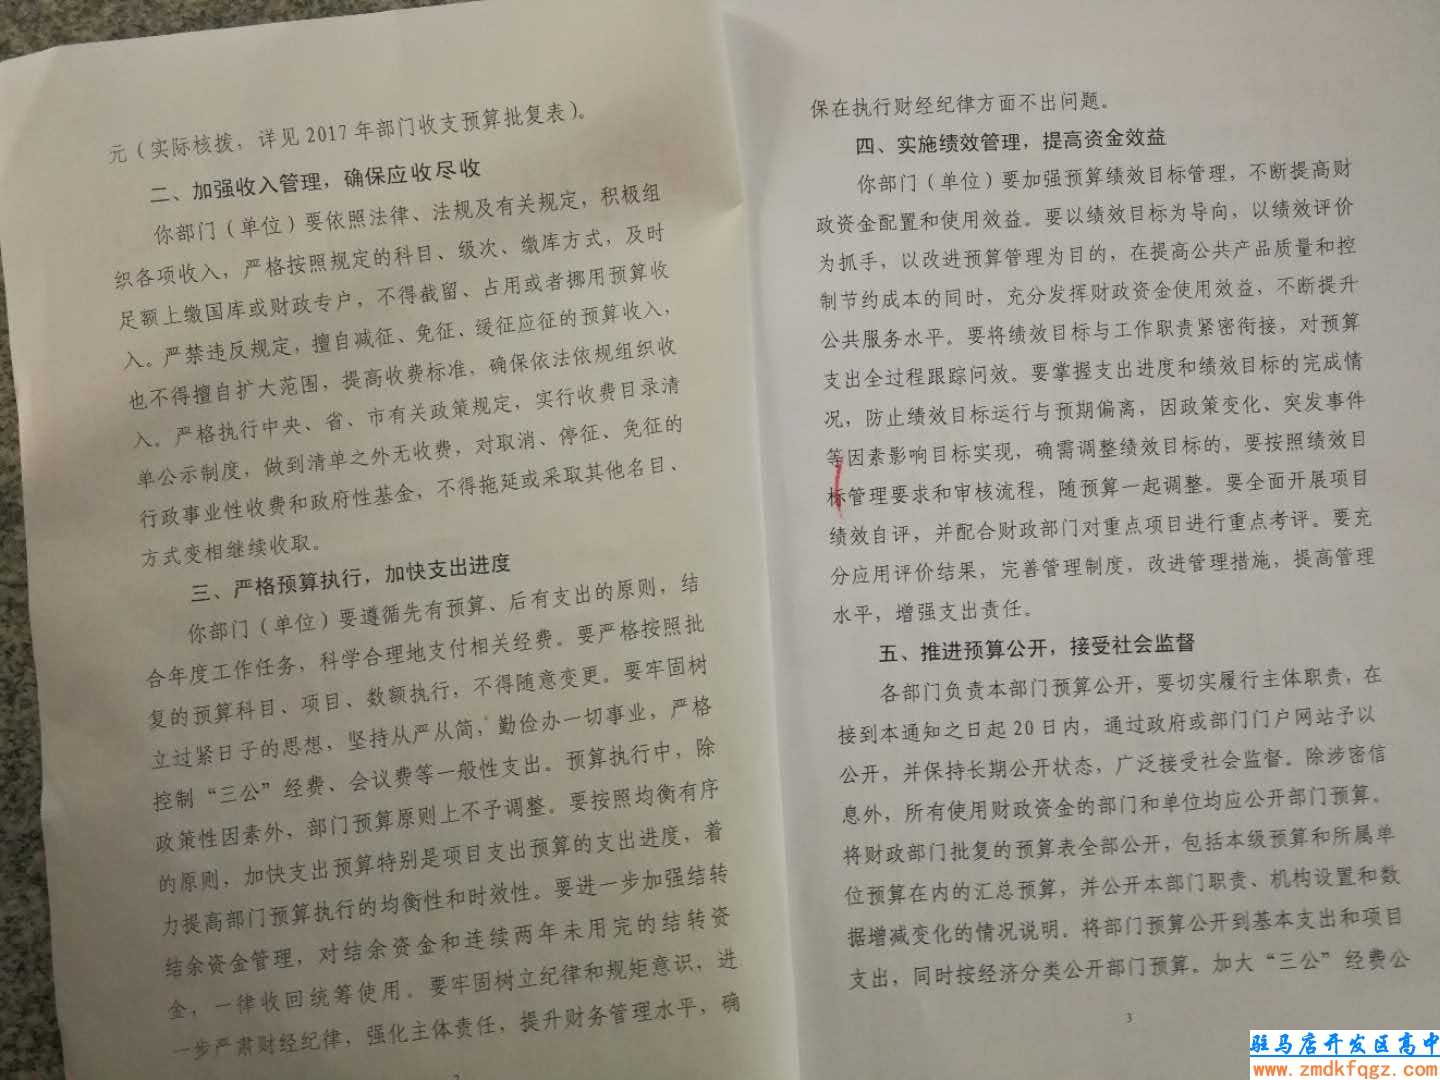 元（实际核拨，详见2017年部门收支预算批复表）。
二、加强收入管理，确保应收尽收
你部门（单位）要依照法律、法规及有关规定，积极组
织各项收入，严格按照规定的科目、级次、缴库方式，及时
足额上缴国库或财政专户，不得截留、占用或者挪用预算收
入。严禁违反规定，擅自减征、免征、缓征应征的预算收入，
也不得擅自扩大范围，提高收费标准，确保依法依规组织收
入。严格执行中央、省、市有关政策规定，实行收费目录清
单公示制度，做到清单之外无收费，对取消、停征、免征的
行政事业性收费和政府性基金，不得拖延或采取其他名目、
方式变相继续收取。
三、严格预算执行，加快支出进度
你部门（单位）要遵循先有预算、后有支出的原则，结
合年度工作任务，科学合理地支付相关经费。要严格按照批
复的预算科目、项目、数额执行，不得随意变更。要牢固树
立过紧日子的思想，坚持从严从简，勤俭办一切事业，严格
控制“三公”经费、会议费等一般性支出。预算执行中，除
政策性因素外，部门预算原则上不予调整。要按照均衡有序
的原则，加快支出预算特别是项目支出预算的支出进度，着
力提高部门预算执行的均衡性和时效性。要进一步加强结转
结余资金管理，对结余资金和连续两年未用完的结转资
金，一律收回统筹使用。要牢固树立纪律和规矩意识，进
一步严肃财经纪律，强化主体责任，提升财务管理水平，确
2
保在执行财经纪律方面不出问题。
四、实施绩效管理，提高资金效益
你部门（单位）要加强预算绩效目标管理，不断提高财
政资金配置和使用效益。要以绩效目标为导向，以绩效评价
为抓手，以改进预算管理为目的，在提高公共产品质量和控
制节约成本的同时，充分发挥财政资金使用效益，不断提升
公共服务水平。要将绩效目标与工作职责紧密衔接，对预算
支出全过程跟踪问效。要掌握支出进度和绩效目标的完成情
况，防止绩效目标运行与预期偏离，因政策变化、突发事件
等因素影响目标实现，确需调整绩效目标的，要按照绩效目
标管理要求和审核流程，随预算一起调整。要全面开展项目
绩效自评，并配合财政部门对重点项目进行重点考评。要充
分应用评价结果，完善管理制度，改进管理措施，提高管理
水平，增强支出责任。
五、推进预算公开，接受社会监督
各部门负责本部门预算公开，要切实履行主体职责，在
接到本通知之日起20日内，通过政府或部门门户网站予以
公开，并保持长期公开状态，广泛接受社会监督。除涉密信
息外，所有使用财政资金的部门和单位均应公开部门预算。
将财政部门批复的预算表全部公开，包括本级预算和所属单
位预算在内的汇总预算，并公开本部门职责、机构设置和数
据增减变化的情况说明。将部门预算公开到基本支出和项目
支出，同时按经济分类公开部门预算。加大“三公”经费公
3
驻马店开发区高中
www.zmdkfqgz.com